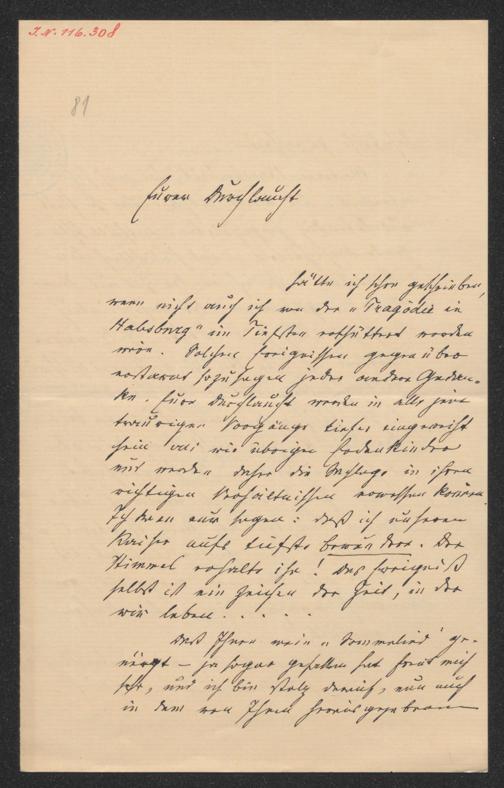 I.N. 116.308
81
Eurer Durchlaucht
hätte ich schon geschrieben,
wenn nicht auch ich von der „Tragödie in
Habsburg" im Tiefsten erschüttert worden
wäre. Solchen Ereignissen gegenüber
erstarrt sozusagen jeder andere Gedan-
ke. Eure Durchlaucht werden in alle jene
traurigen Vorgänge tiefer eingeweiht
sein als wir übrigen Erdenkinder
und werden daher die Sachlage in ihren
richtigen Verhältnissen ermessen können.
Ich kann nur sagen: daß ich unseren
Kaiser aufs tiefste bewundere. Der
Himmel erhalte ihn! Das Ereigniß
selbst ist ein Zeichen der Zeit, in der
wir leben. . . . . .
Daß Ihnen mein „ ge-
nügt — ja sogar gefallen hat freut mich
sehr, und ich bin stolz darauf, nun auch
in dem von Ihnen herausgegebenen